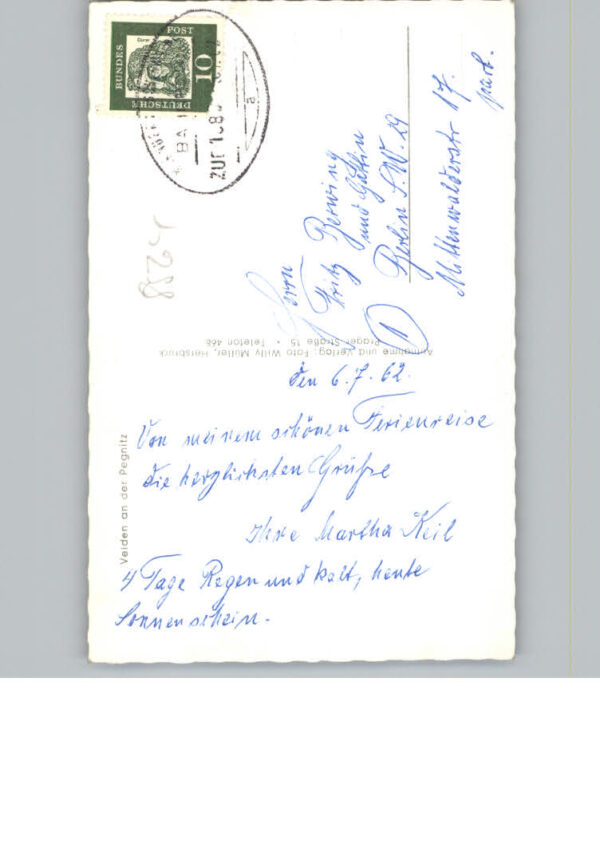 den 6.7.62.
Von meinem schönen Ferienreise
die herzlichsten Grüße
Ihre Martha Keil
4 Tage Regen und kalt, heute
Sonnenschein.
Herrn
Fritz Berwing
und Gattin
(1) Berlin S.W. 29
Mittenwalderstr 17.
part.
Velden an der Pegnitz
Aufnahme und Verlag: Foto Willy Müller, Hersbruck
Prager Straße 15 • Telefon 468
DEUTSCHE
BUNDES
POST
10
ZUG
a